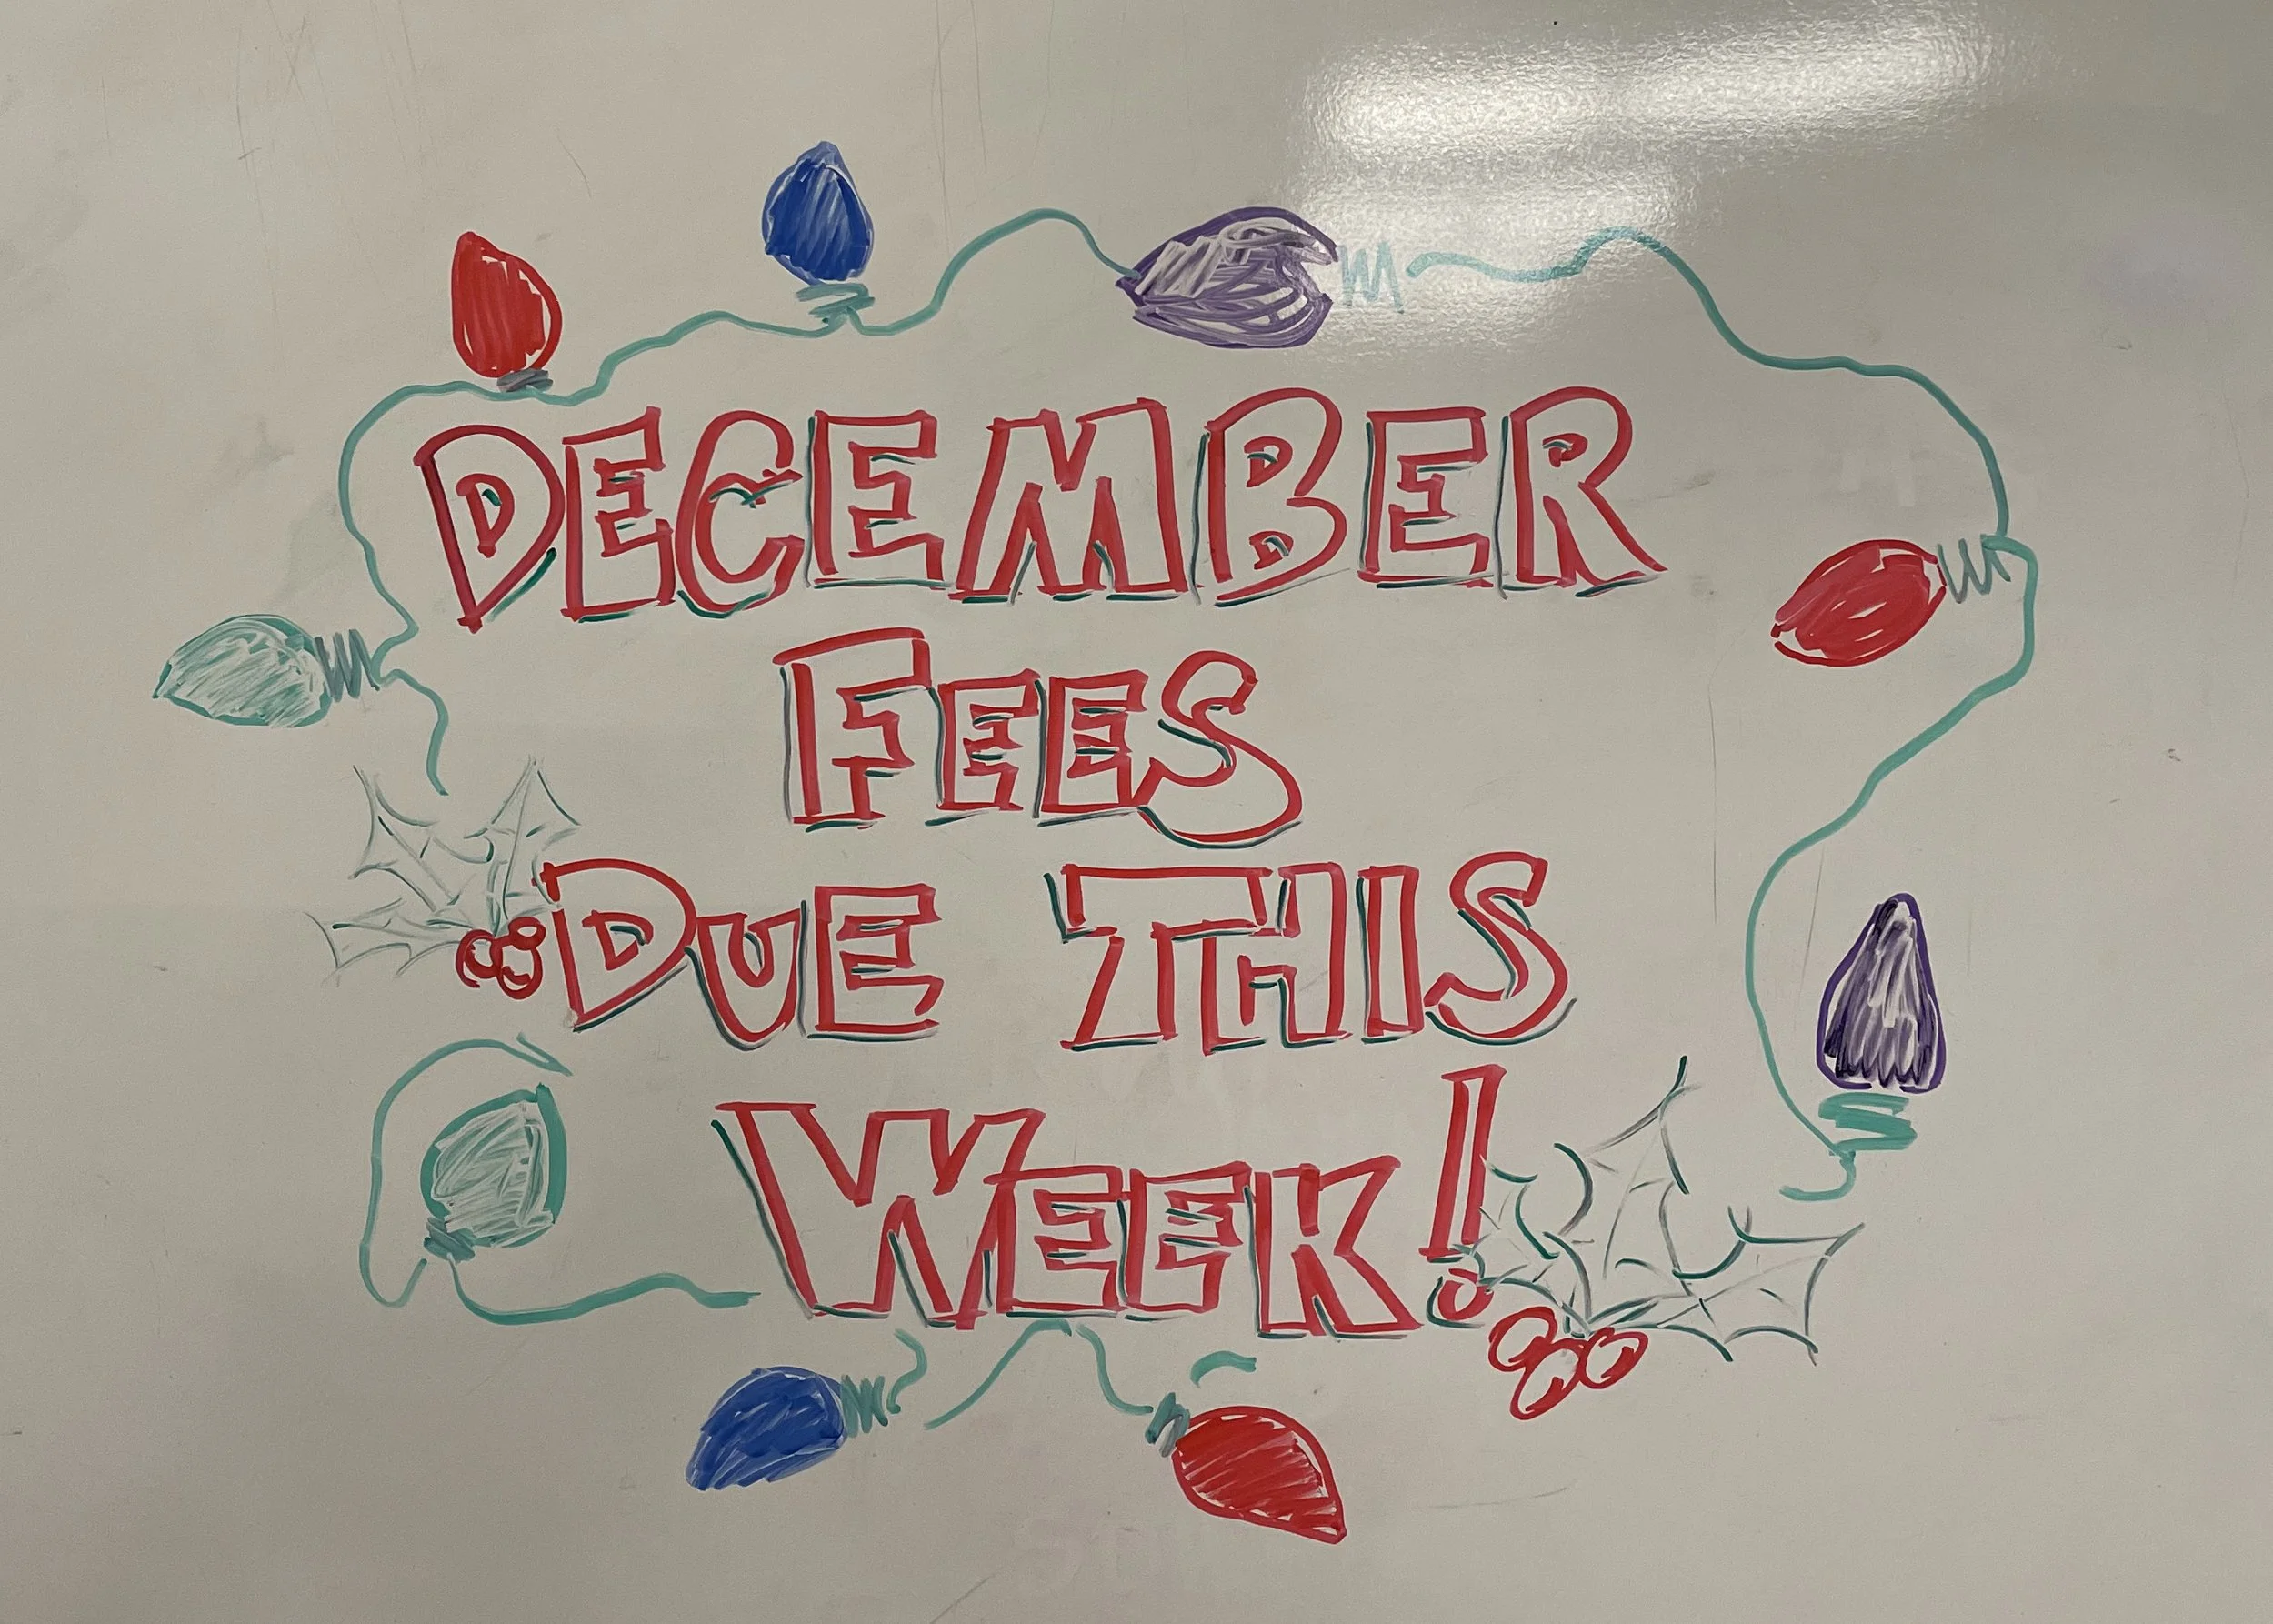 DECEMBER
FEES
DUE THIS
WEEK!